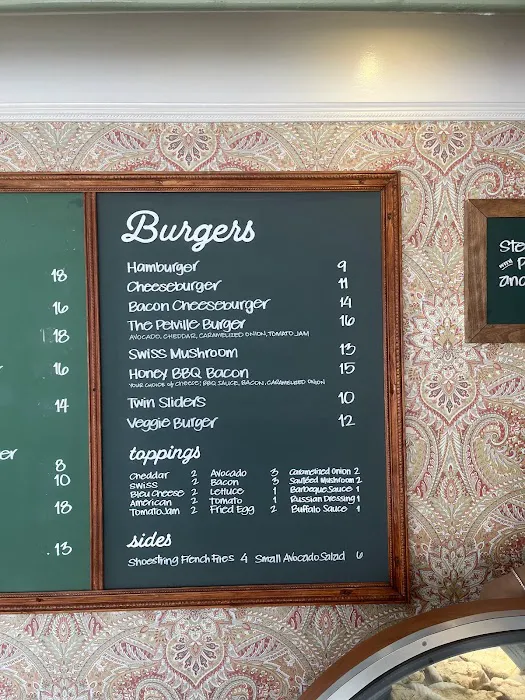 18
16
18
16
14
er
8
10
18
13
Burgers
Hamburger 9
Cheeseburger 11
Bacon Cheeseburger 14
The Pelville Burger 16
AVOCADO, CHEDDAR, CARAMELIZED ONION, TOMATO JAM
Swiss Mushroom 13
Honey BBQ Bacon 15
YOUR CHOICE of CHEESE, BBQ SAUCE, BACON, CARAMELIZED ONION
Twin Sliders 10
Veggie Burger 12
toppings
Cheddar 2 Avocado 3 Caramelized Onion 2
Swiss 2 Bacon 3 Sautéed Mushroom 2
Bleu Cheese 2 Lettuce 1 Barbeque Sauce 1
American 2 Tomato 1 Russian Dressing 1
Tomato Jam 2 Fried Egg 2 Buffalo Sauce 1
sides
Shoestring French Fries 4 Small Avocado Salad 6
Ste
WITH P
and